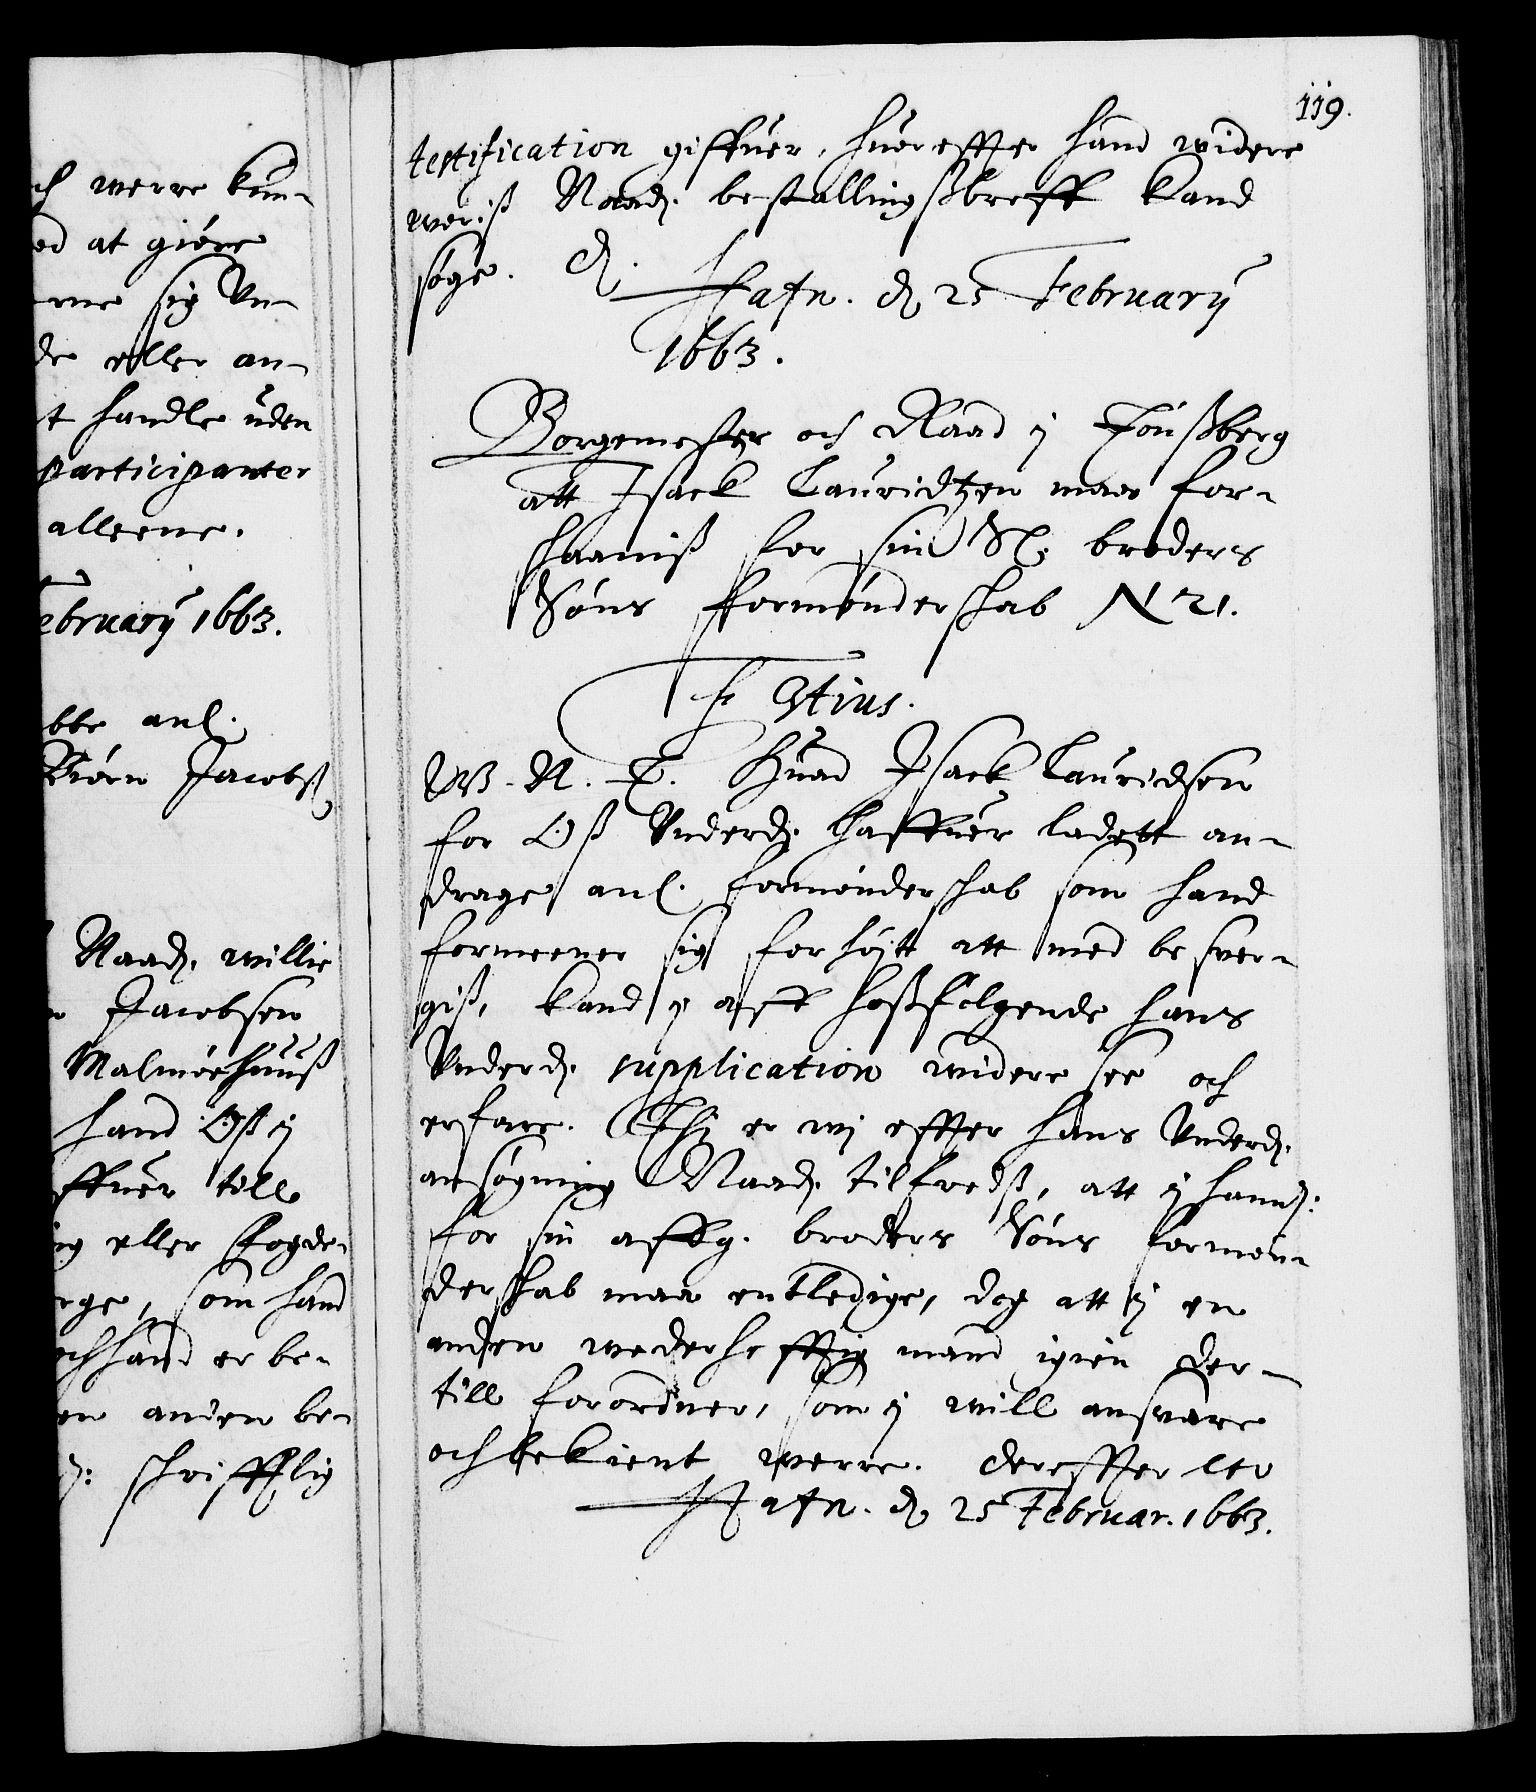 ch werre kun-
ed at giöre
erne sig Vn-
de eller an-
t handle uden
participanter
alleene.
ebruarÿ 1663.
bbe anl.
Biörn Jacobß.
Naad. willie
n Jacobsen
Malmöehuuß
hand Oß ÿ
ffuer till
ig eller Fogde-
rge, som hand
och hand er be-
en anden be-
d: schrifftlig
119.
testification giffuer, huoreffter hand widere
Naad. bestallingsbreff kand
söge. d.
Hafn. d 25 Februarÿ
1663.
Borgemester och Raad ÿ Tönßberg
att Isack Lauridtzen maa for-
skaaniß for sin Sl. broders
Söns formÿnderskab N 21.
F 3tius.
W. N. T. Huad Isack Lauridsen
for Oß Vnderd. haffuer ladett an-
drage anl. formÿnderskab som hand
formeener sig forhöÿt att med besver-
giß, kand ÿ aff hoßfölgende hans
Vnderd. supplication widere see och
erfare. Thi er wj effter hans Vnderd.
ansögning Naad. tilfredß, att ÿ hannd:
for sin affg. broders Söns formÿn-
derskab maa entledige, dog att ÿ en
anden wederhefftig mand igien der-
till forordner, som ÿ will ansvare
och bekient werre. dereffter etc
Hafn. d 25 Februar. 1663.